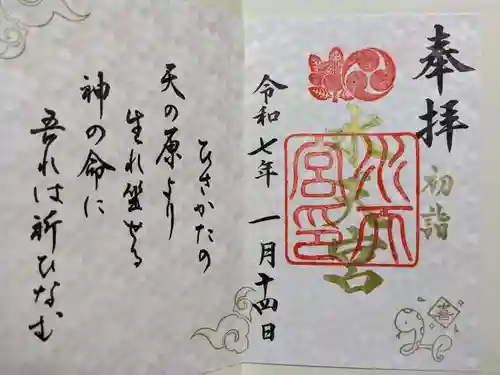 奉拝
初詣
水天宮
水天宮印
令和七年 一月十四日
ひさかたの
天の原より
生れ坐せる
神の命に
吾れは祈ひなむ